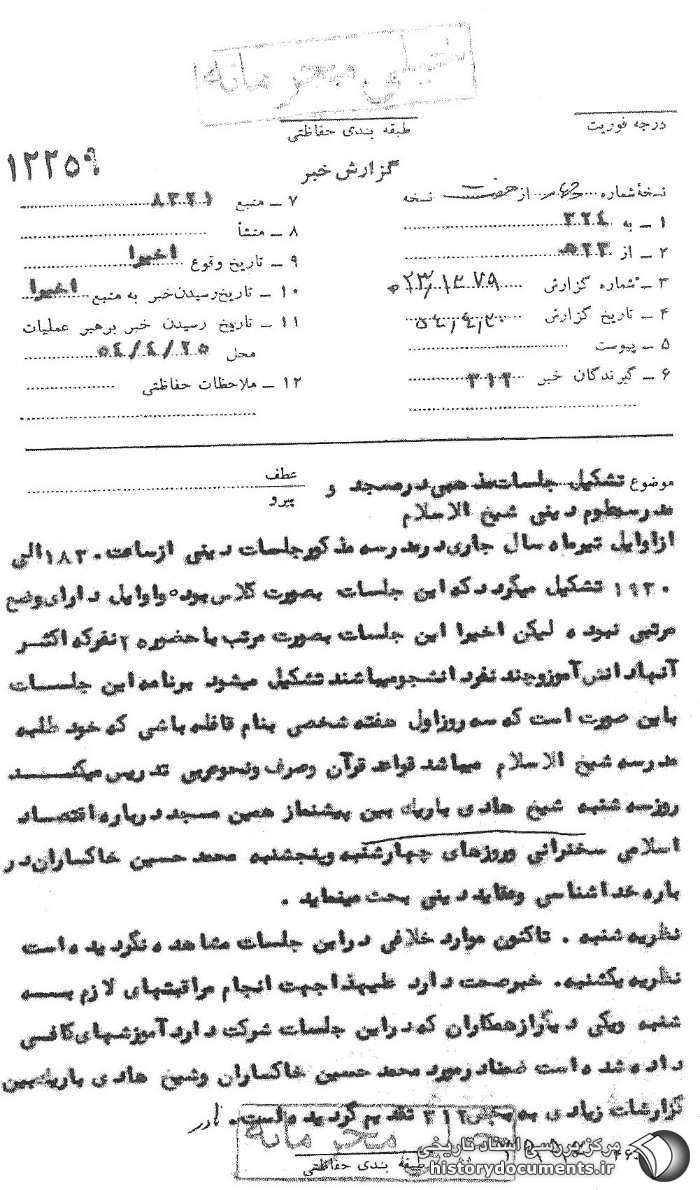 خیلی محرمانه
درجه فوریت
طبقه بندی حفاظتی
گزارش خبر
۱۲۲۵۹
نسخهٔ شماره از هفت نسخه
۱ – به ۳۲۴
۲ – از ۵۲۳
۳ – شماره گزارش ۵۲۳/۱۳۷۹
۴ – تاریخ گزارش ۵۴/۴/۳۰
۵ – پیوست
۶ – گیرندگان خبر ۳۱۲
۷ – منبع ۸۳۲۱
۸ – منشأ
۹ – تاریخ وقوع اخیرا
۱۰ – تاریخ رسیدن خبر به منبع اخیرا
۱۱ – تاریخ رسیدن خبر برهبر عملیات
محل ۵۴/۴/۲۵
۱۲ – ملاحظات حفاظتی
موضوع تشکیل جلسات مذهبی در مسجد و
مدرسه علوم دینی شیخ الاسلام
عطف
پیرو
از اوایل تیرماه سال جاری در مدرسه مذکور جلسات دینی از ساعت ۱۸۳۰ الی
۱۹۳۰ تشکیل میگردد که این جلسات بصورت کلاس بوده و اوایل دارای وضع
مرتبی نبوده لیکن اخیرا این جلسات بصورت مرتب با حضور نفر که اکثر
آنها دانش آموز و چند نفر دانشجو میباشند تشکیل میشود برنامه این جلسات
باین صورت است که سه روز اول هفته شخصی بنام قافله باشی که خود طلبه
مدرسه شیخ الاسلام میباشد قواعد قرآن و صرف و نحو عربی تدریس میکند
روز سه شنبه شیخ هادی باریک بین پیشنماز همین مسجد درباره اقتصاد
اسلامی سخنرانی و روزهای چهارشنبه و پنجشنبه محمد حسین خاکساران در
باره خداشناسی و عقاید دینی بحث مینماید .
نظریه شنبه . تاکنون موارد خلافی در این جلسات مشاهده نگردیده است
نظریه یکشنبه . خبر صحت دارد علیهذا جهت انجام مراقبتهای لازم به
شنبه و یکی دیگر از همکاران که در این جلسات شرکت دارد آموزشهای کافی
داده شده است ضمنا در مورد محمد حسین خاکساران و شیخ هادی باریک بین
گزارشات زیادی به بخش ۳۱۲ تقدیم گردیده است . نادر
خیلی محرمانه
طبقه بندی حفاظتی
مرکز بررسی اسناد تاریخی
historydocuments.ir